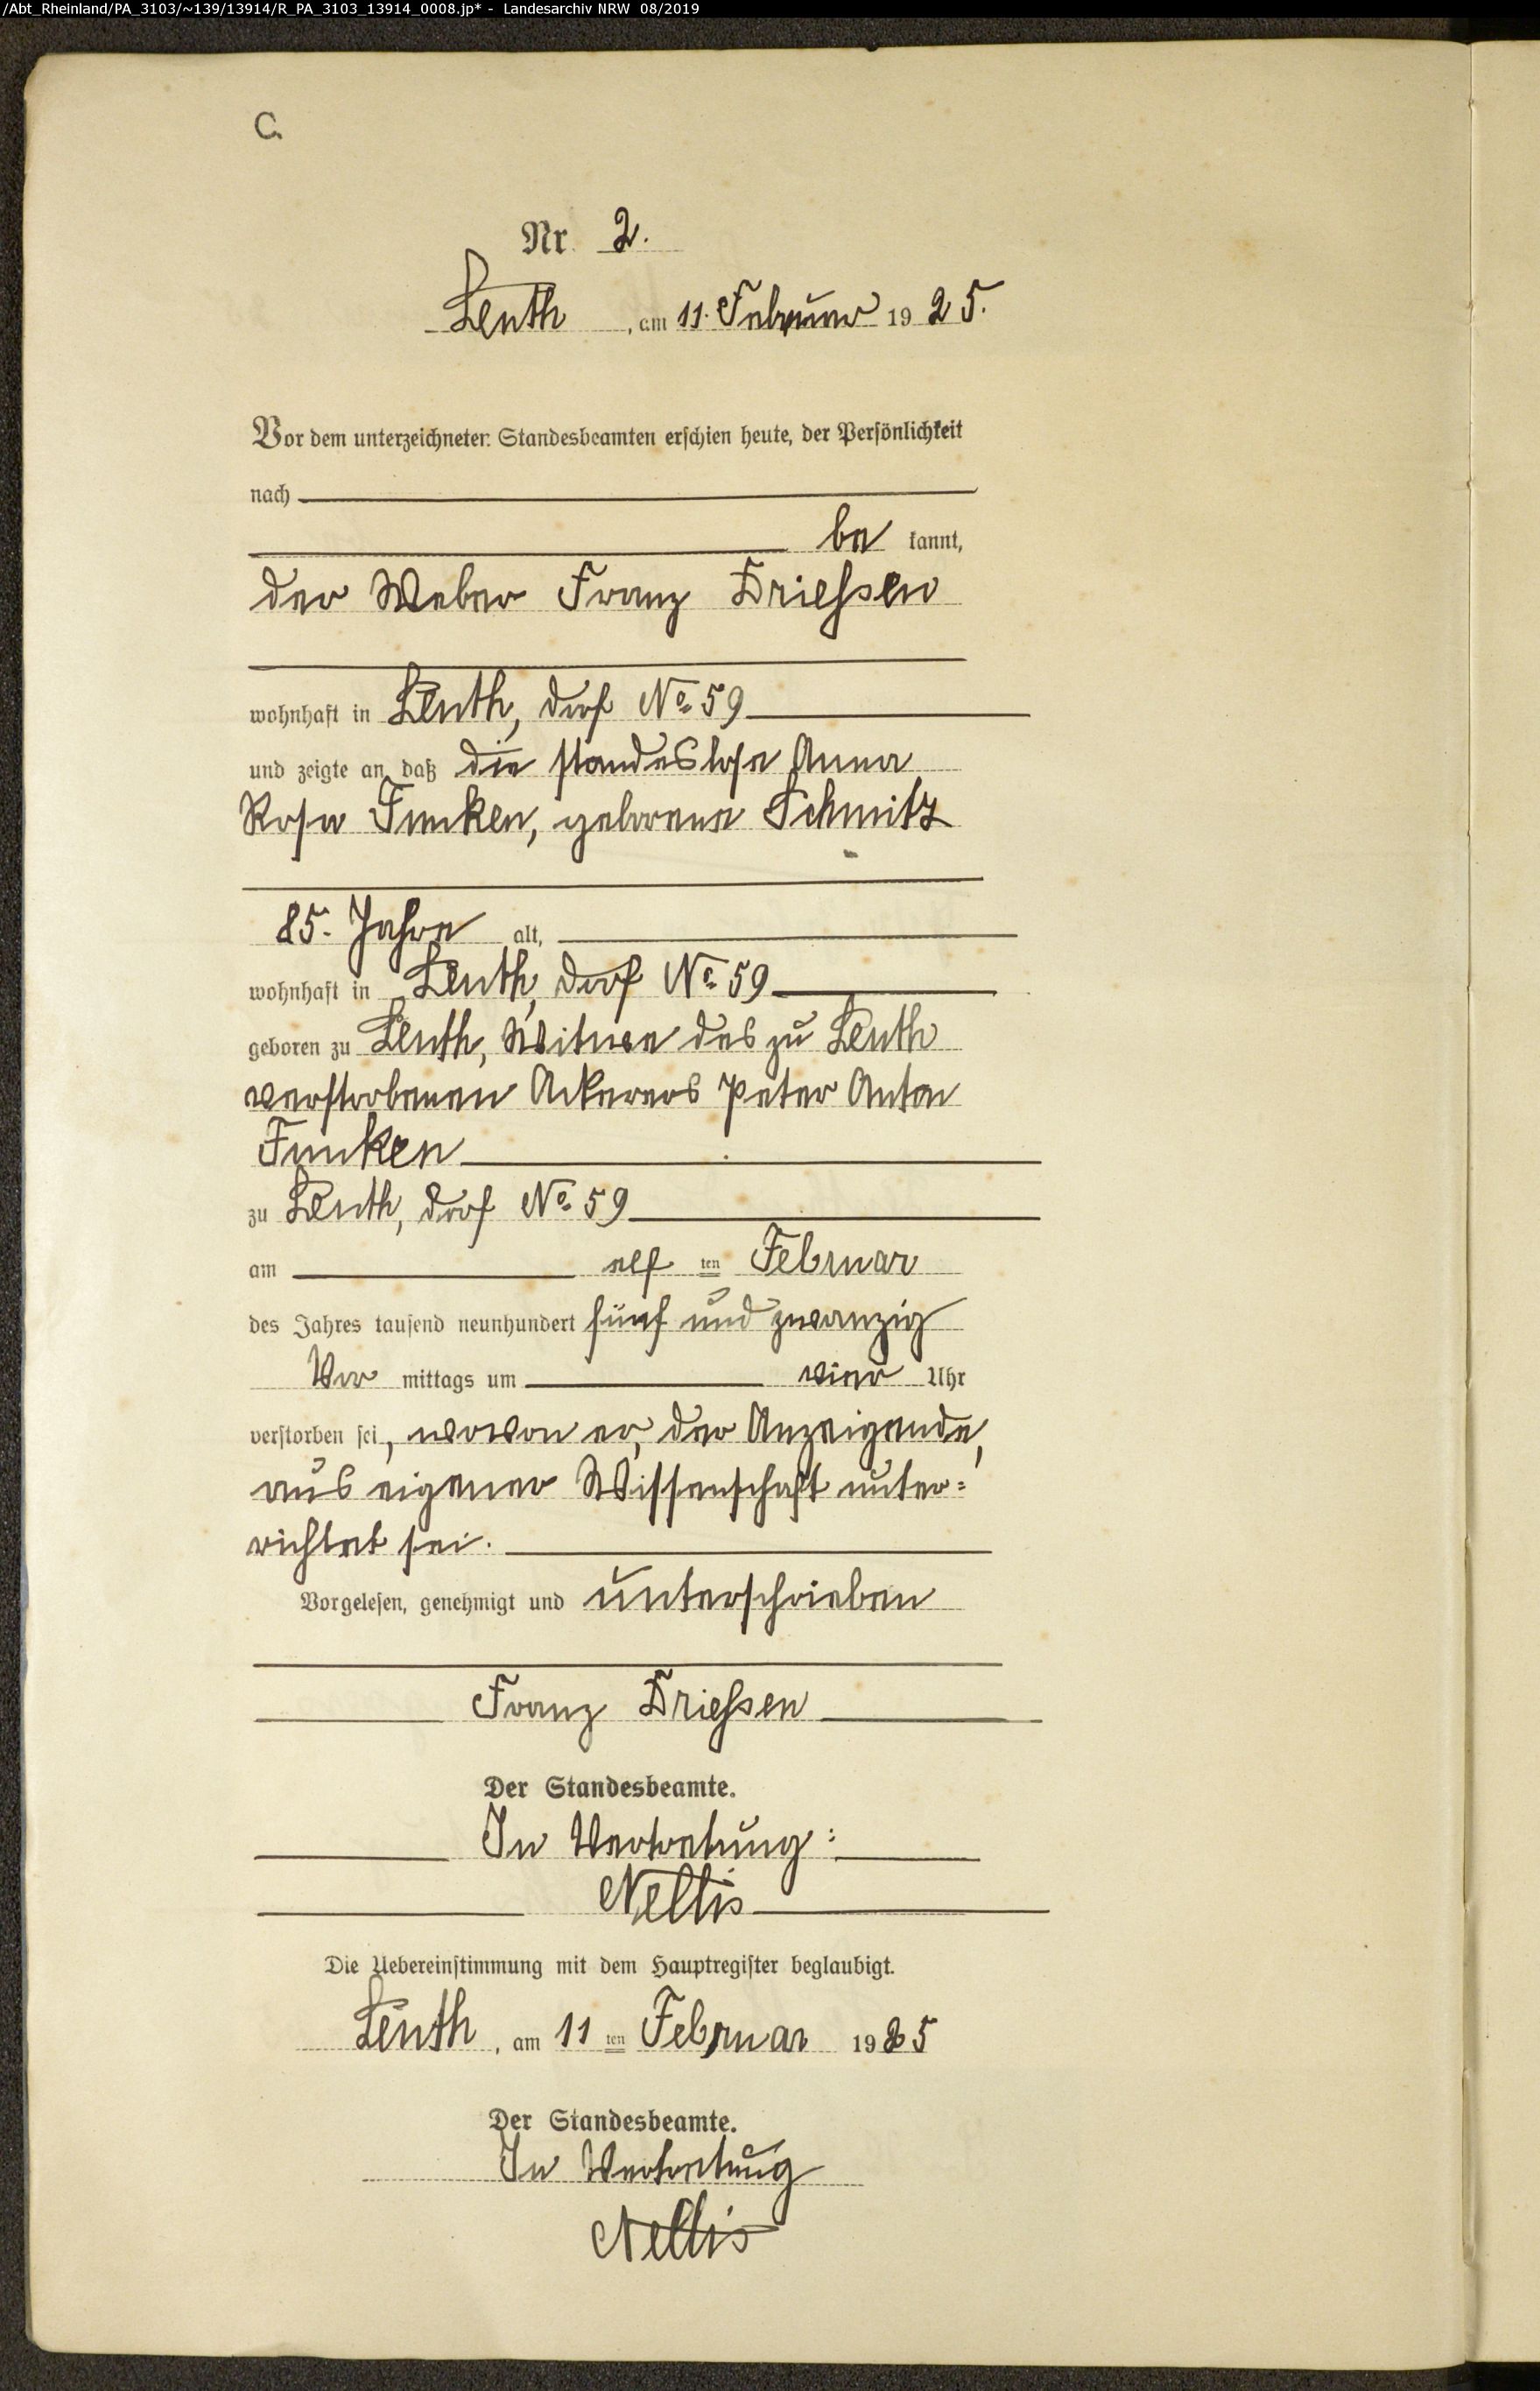 /Abt_Rheinland/PA_3103/~139/13914/R_PA_3103_13914_0008.jp* - Landesarchiv NRW 08/2019
C.
Nr. 2.
Leuth, am 11. Februar 1925.
Vor dem unterzeichneten Standesbeamten erschien heute, der Persönlichkeit
nach
be kannt,
der Weber Franz Drießen
wohnhaft in Leuth, Dorf No 59
und zeigte an, daß die standeslose Anna
Rosa Funken, geborene Schmitz
85. Jahre alt,
wohnhaft in Leuth, Dorf No 59
geboren zu Leuth, Witwe des zu Leuth
verstorbenen Ackerers Peter Anton
Funken
zu Leuth, Dorf No 59
am elf ten Februar
des Jahres tausend neunhundert fünf und zwanzig
Vor mittags um vier Uhr
verstorben sei, wovon er, der Anzeigende,
aus eigener Wissenschaft unter=
richtet sei.
Vorgelesen, genehmigt und unterschrieben
Franz Drießen
Der Standesbeamte.
In Vertretung:
Nellis
Die Uebereinstimmung mit dem Hauptregister beglaubigt.
Leuth, am 11 ten Februar 1925
Der Standesbeamte.
In Vertretung
Nellis